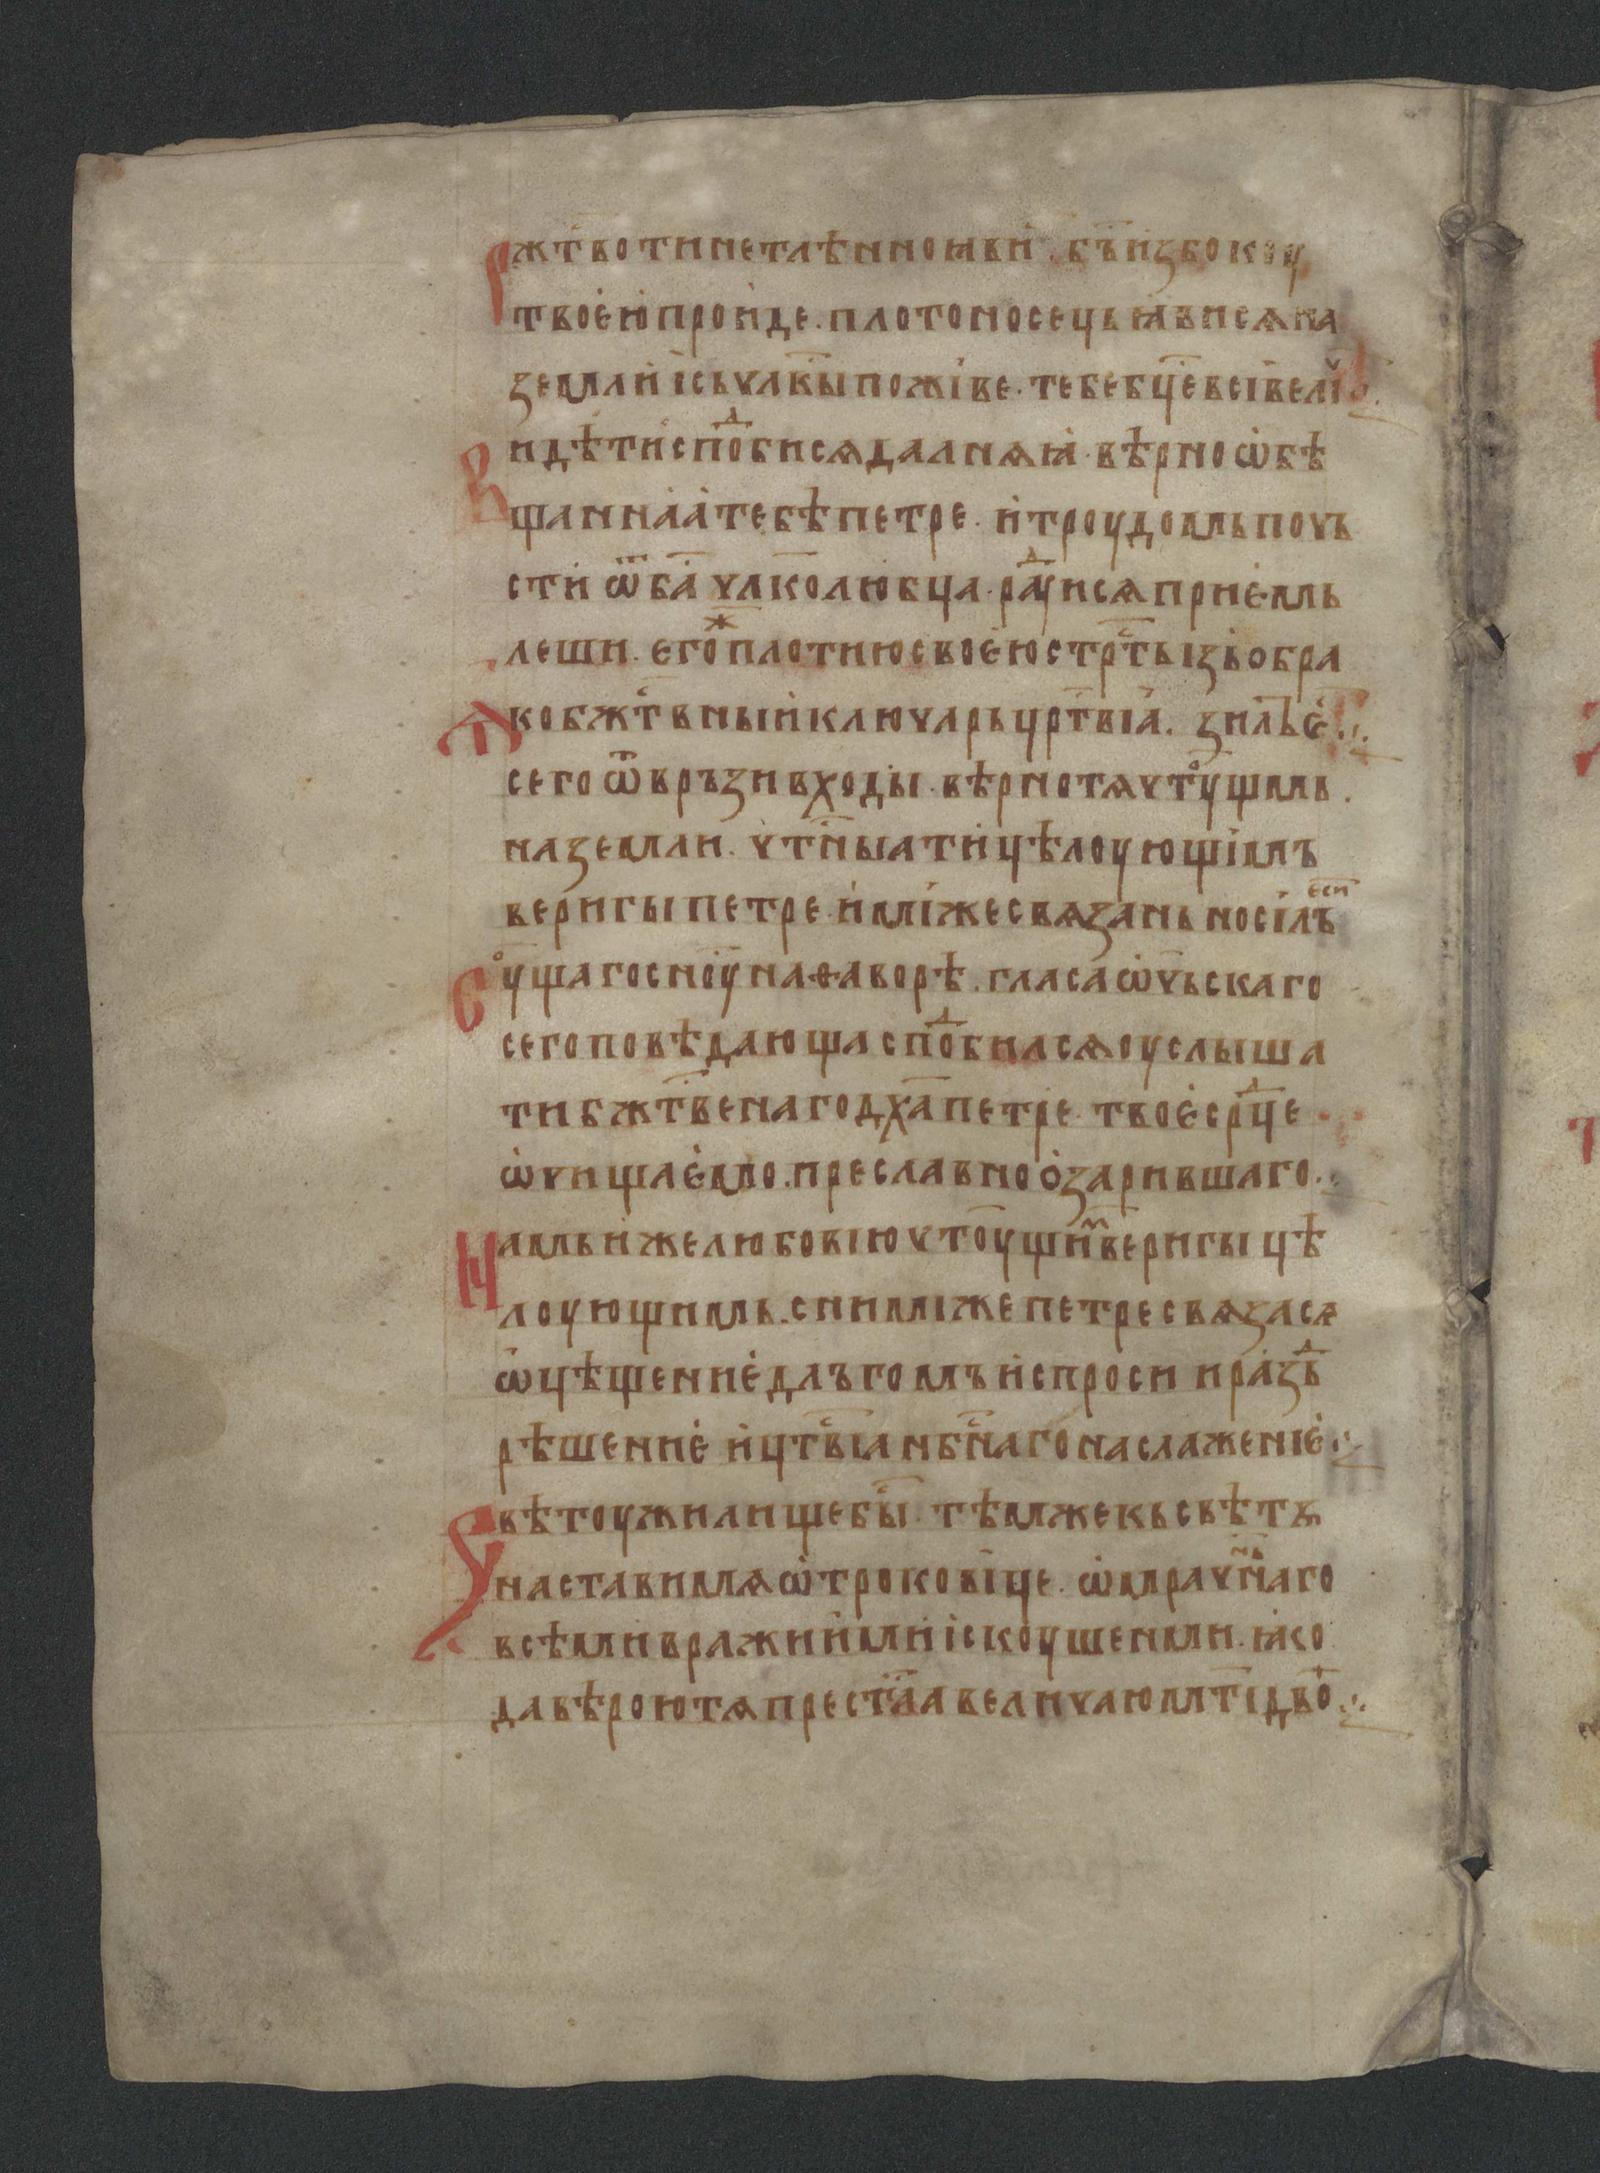 Ржт҇вотинетлѣнноꙗви . бъ҃избокоу
твоеюпроиде . плотоносецьꙗвисѧна
землиисъчл҃кыпожіве . тебебц҃евсівелї
Видѣтисподо҇бисѧдалнѧꙗ . вѣрноѡбѣ
щаннаатебѣпетре . итроудомьпочь
сти ѿба҃ чл҃колюбца . радꙋ҇исѧприемь
леши . егожплотиюсвоеюстрⷭ҇тьізъобра
Ꙗкобжтⷭ҇вныиключарьцрⷭ҇твіа . зилъе
сего ѿврьзивходы . вѣрнотѧчтоущмь .
наземли . чтⷭ҇ныатицѣлоующімъ
веригыпетре . имїжесвѧзаньносілъеси
Соущагосн҃оунаѳаворѣ . гласаѡч҃ьскаго
сегоповѣдающасподо҇биласѧоуслыша
тибжтⷭ҇венагодх҃апетре . твоесрⷣце
ѡчищаемо . преславноозарившаго .
Намьижелюбовіючтоущимверигыцѣ
лоующимь . снимїжепетресвѧзасѧ
ѡцѣщениедлъгомъиспроси иразъд
рѣшение ицтⷭ҇віанбⷭ҇нагонаслажение
Свѣтоужилищебы҇ . тѣмжекьсвѣтꙋ
наставимѧѡтроковіце . ѡмрачнънаго
всѣмивражиимиіскоушенми . ꙗко
давѣроютѧпрест҃ааавеличаюмт҇ідв҃о